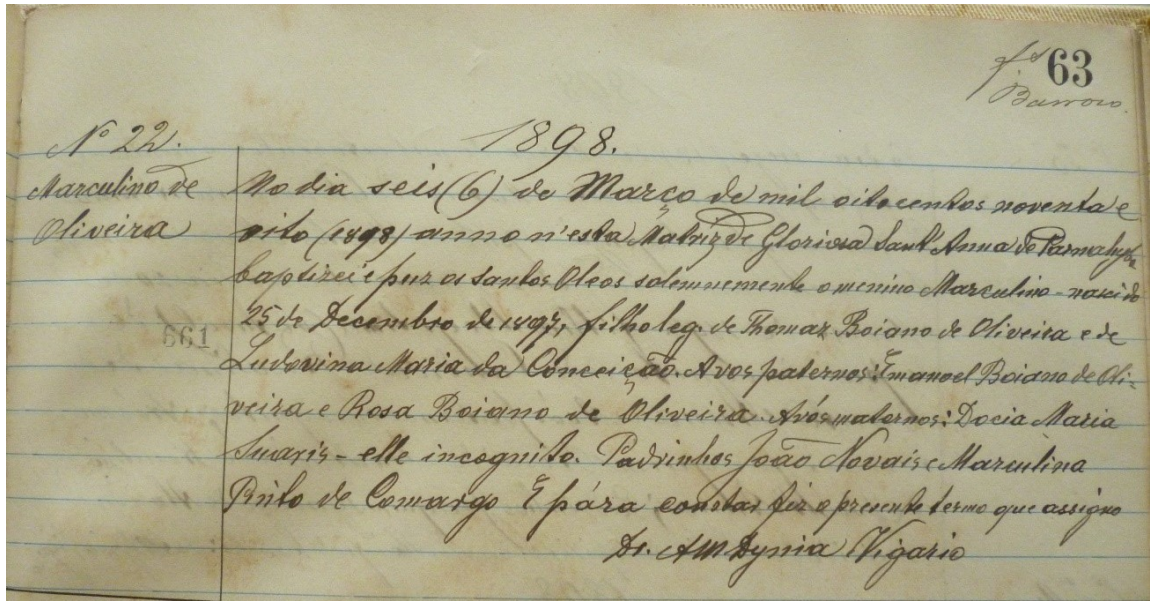 fs 63
Barroso
Nº 22.
1898.
Marculino de
Oliveira
No dia seis (6) de Março de mil oitocentos noventa e
oito (1898) anno n'esta Matriz de Gloriosa Sant'Anna de Parnahyba
baptizei e puz os santos Oleos solemnemente o menino Marculino - nascido
25 de Decembro de 1897, filho leg. de Thomaz Boiano de Oliveira e de
661
Ludovina Maria da Conceição. Avos paternos: Emanoel Boiano de Oli-
veira e Rosa Boiano de Oliveira. Avós maternos: Docia Maria
Suaris - elle incognito. Padrinhos João Novais e Marculina
Brito de Comargo E pára constar fiz o presente termo que assigno
Dr. Vigario